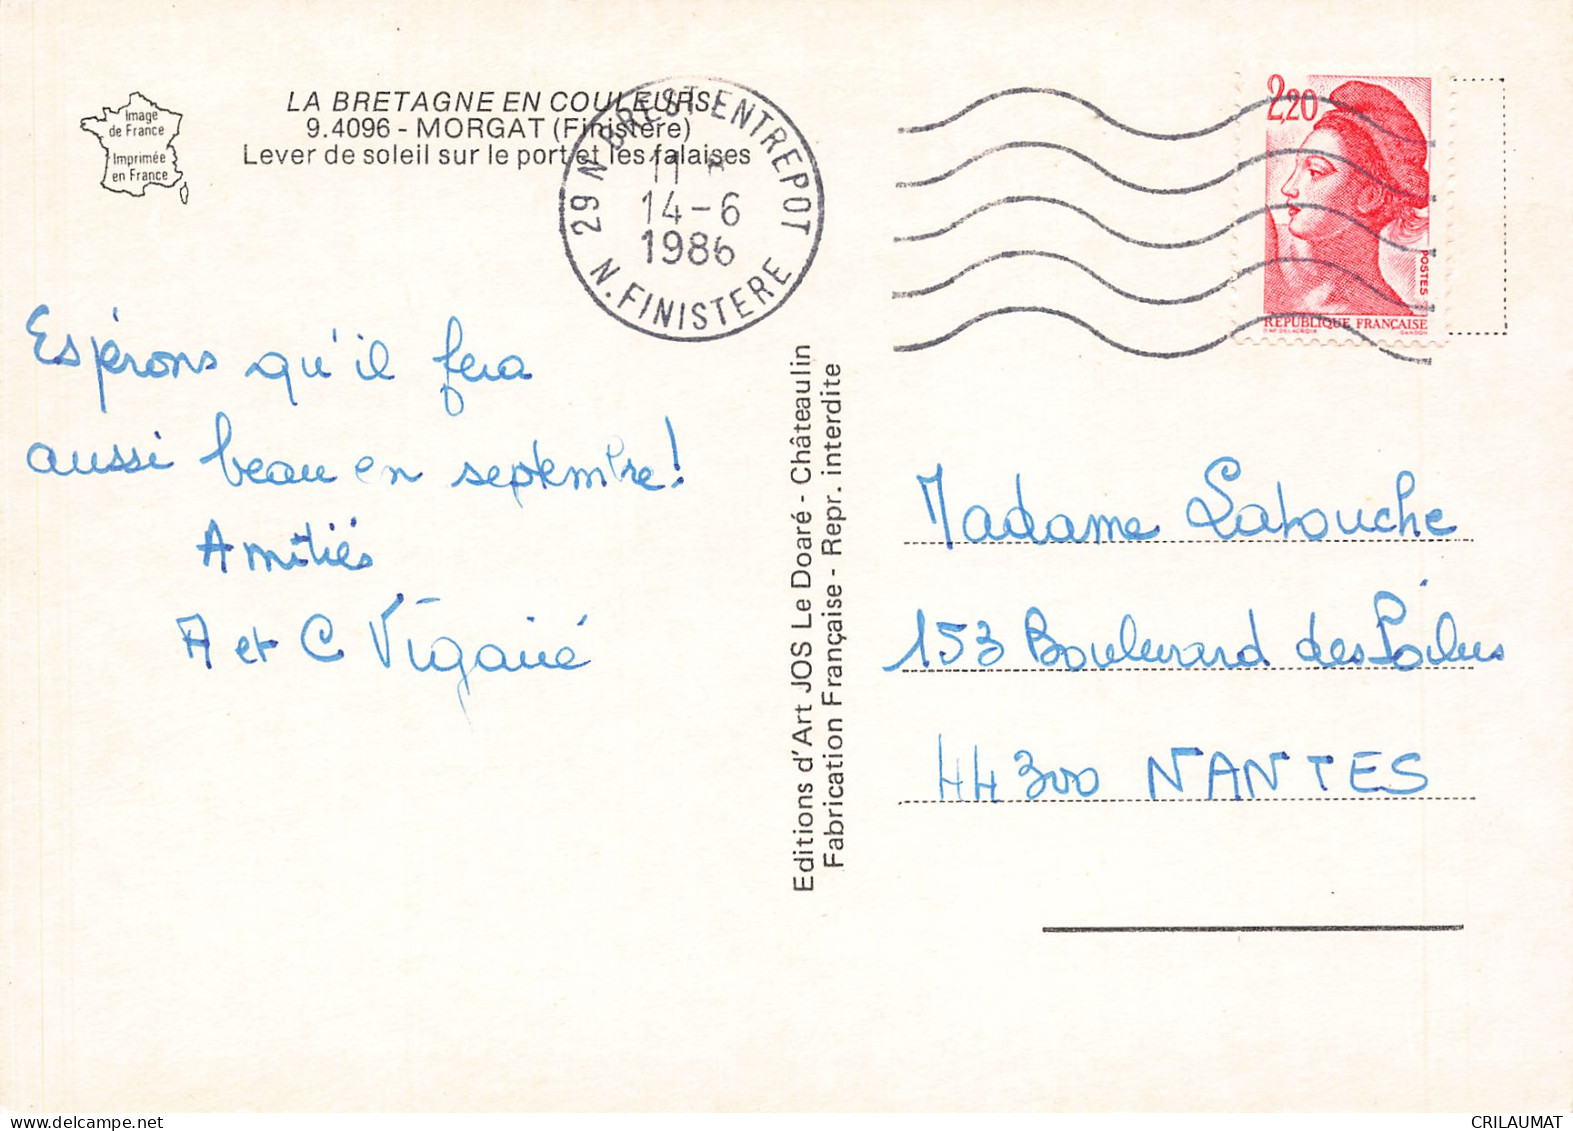 Image
de France
Imprimée
en France
LA BRETAGNE EN COULEURS
9.4096 - MORGAT (Finistère)
Lever de soleil sur le port et les falaises
29 N BREST-ENTREPOT
11 H
14-6
1986
N. FINISTERE
2,20
POSTES
REPUBLIQUE FRANÇAISE
D'AP. DELACROIX GANDON
Espérons qu'il fera
aussi beau en septembre!
Amitiés
A et C
Editions d'Art JOS Le Doaré - Châteaulin
Fabrication Française - Repr. interdite
Madame Latouche
153 Boulevard des Poilus
44300 NANTES
CRILAUMAT